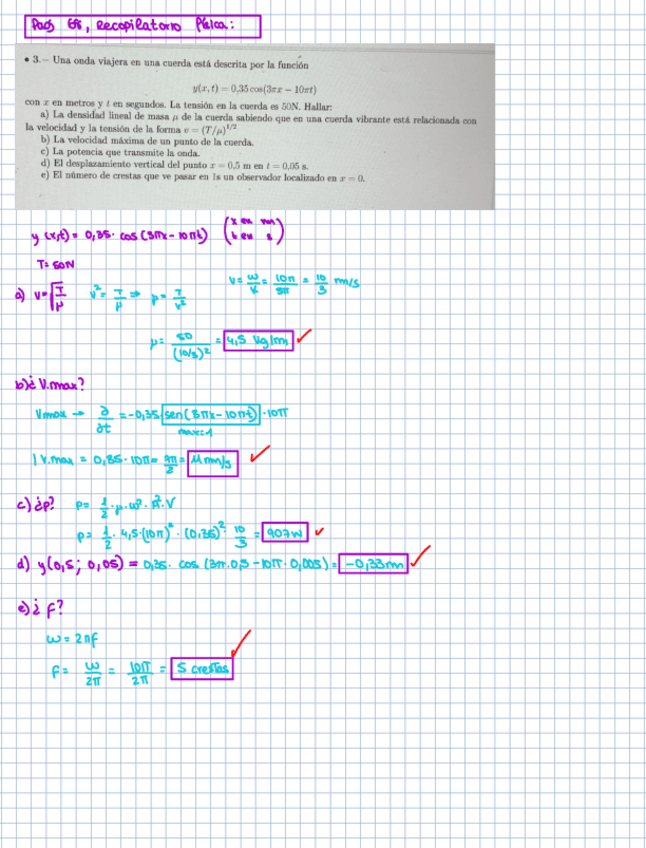 Pag 68, Recopilatorio Física:
• 3.– Una onda viajera en una cuerda está descrita por la función
y(x, t) = 0,35 cos(3πx − 10πt)
con x en metros y t en segundos. La tensión en la cuerda es 50N. Hallar:
a) La densidad lineal de masa μ de la cuerda sabiendo que en una cuerda vibrante está relacionada con
la velocidad y la tensión de la forma v = (T/μ)^1/2
b) La velocidad máxima de un punto de la cuerda.
c) La potencia que transmite la onda.
d) El desplazamiento vertical del punto x = 0,5 m en t = 0,05 s.
e) El número de crestas que ve pasar en 1s un observador localizado en x = 0.
y (x,t) = 0,35· cos (3πx − 10πt) (x en m
t en s)
T= 50N
a) v=√T/μ v² = T/μ ⇒ μ= T/v² v= ω/K = 10π/3π = 10/3 m/s
μ= 50/(10/3)² = 4,5 kg/m ✓
b) ¿ V.max?
Vmax → ∂/∂t = −0,35· sen(3πx − 10πt) ·10π
max=1
|V.max = 0,35· 10π = 7π/2 = 11 m/s ✓
c) ¿P? P= 1/2·μ·ω²·A²·V
P= 1/2· 4,5·(10π)²·(0,35)²· 10/3 = 907W ✓
d) y(0,5; 0,05) = 0,35· cos (3π·0,5 − 10π· 0,005) = −0,33m ✓
e) ¿ f?
ω= 2πf
f= ω/2π = 10π/2π = 5 crestas ✓